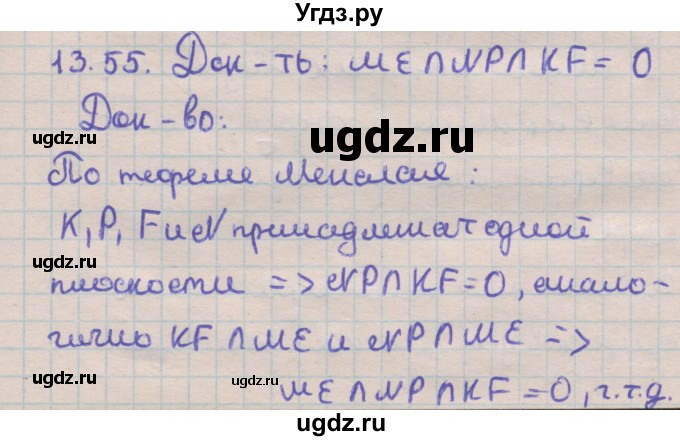 Угдз.ру
13.55. Док-ть: ME∩NP∩KF = O
Док-во:
ugdz.ru
По теореме Менелая:
K, P, F и N принадлежат одной
плоскости => NP∩KF=O, анало-
гично KF∩ME и NP∩ME =>
ME∩NP∩KF = O, ч.т.д.
ugdz.ru
ugdz.ru
ugdz.ru
ugdz.ru
ugdz.ru
ugdz.ru
ugdz.ru
ugdz.ru